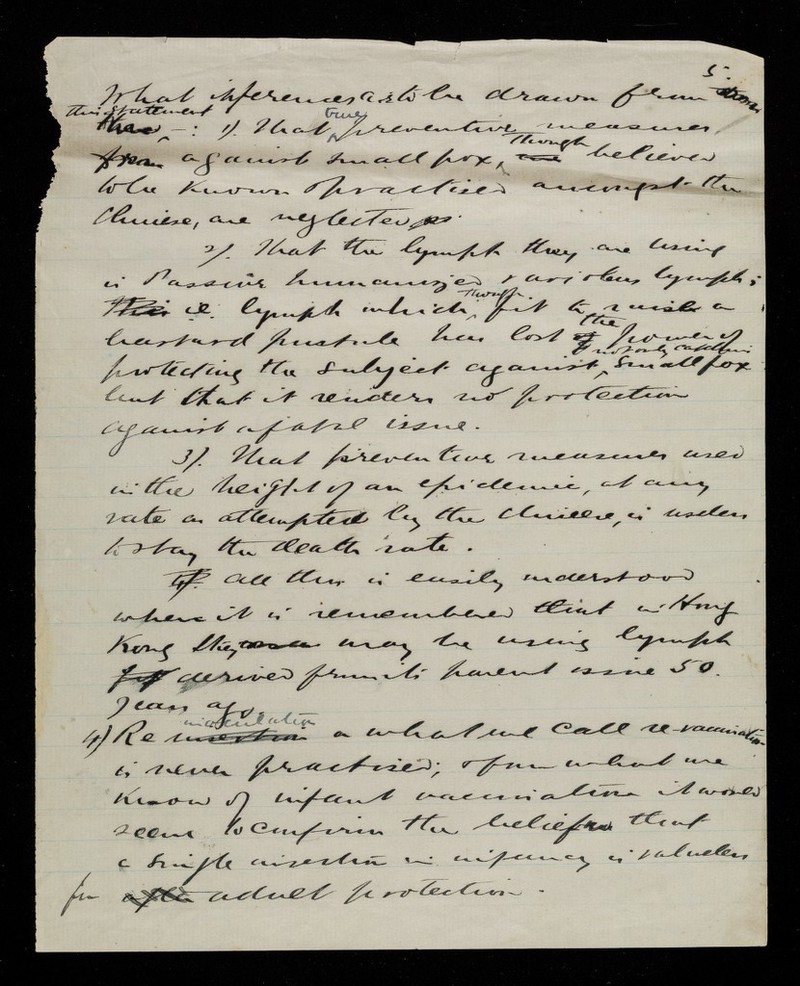 5.
What inferences are to be drawn from
this statement
-: 1). That true preventive measures
against small pox, though believed
to be known & practised amongst the
Chinese, are neglected.
2). That the lymph they are using
is Passive humanized variolous lymph;
i.e. lymph which though fit to raise a
bastard pustule has lost the power of
protecting the subject against, not only catching Small pox
but that it renders no protection
against a fatal issue.
3). That preventive measures used
in the height of an epidemic, at any
rate as attempted by the Chinese, is useless
to stay the death rate.
all this is easily understood
when it is remembered that in Hong
Kong they may be using lymph
derived from its parent issue 50
years ago.
4) Re inoculation or what we call re-vaccination
is never practised; & from what we
know of infant vaccination it would
seem to confirm the belief that
a single insertion in infancy is valueless
for adult protection.